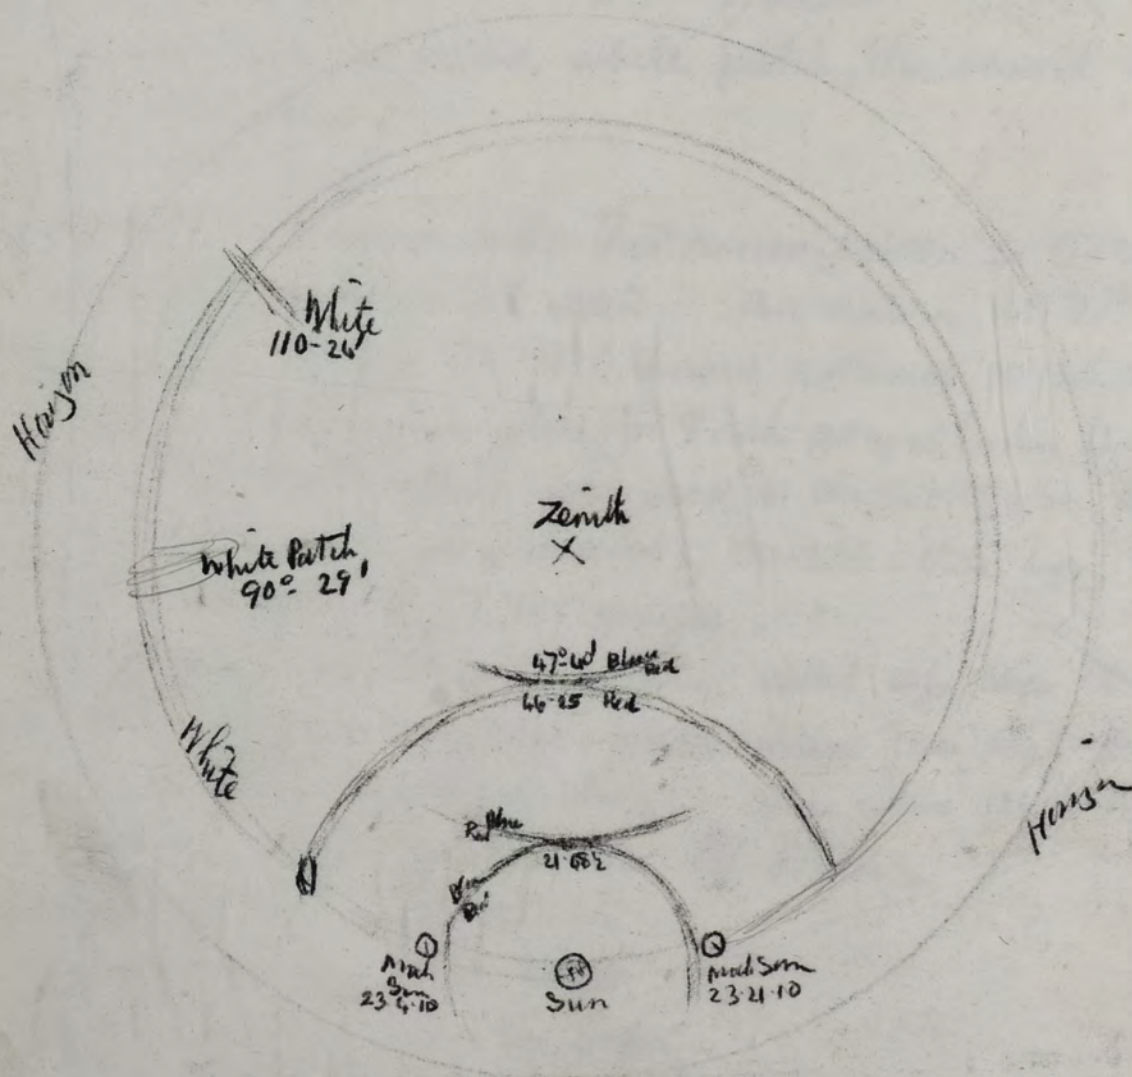 White
110-26'
Horizon
Zenith
White Patch
90°- 29'
47°-40 Blue
Red
46-25 Red
White
Horizon
Red Blue
21.58½
Blue
Red
Mock
Sun
23.4.10
Sun
Mock Sun
23.21.10